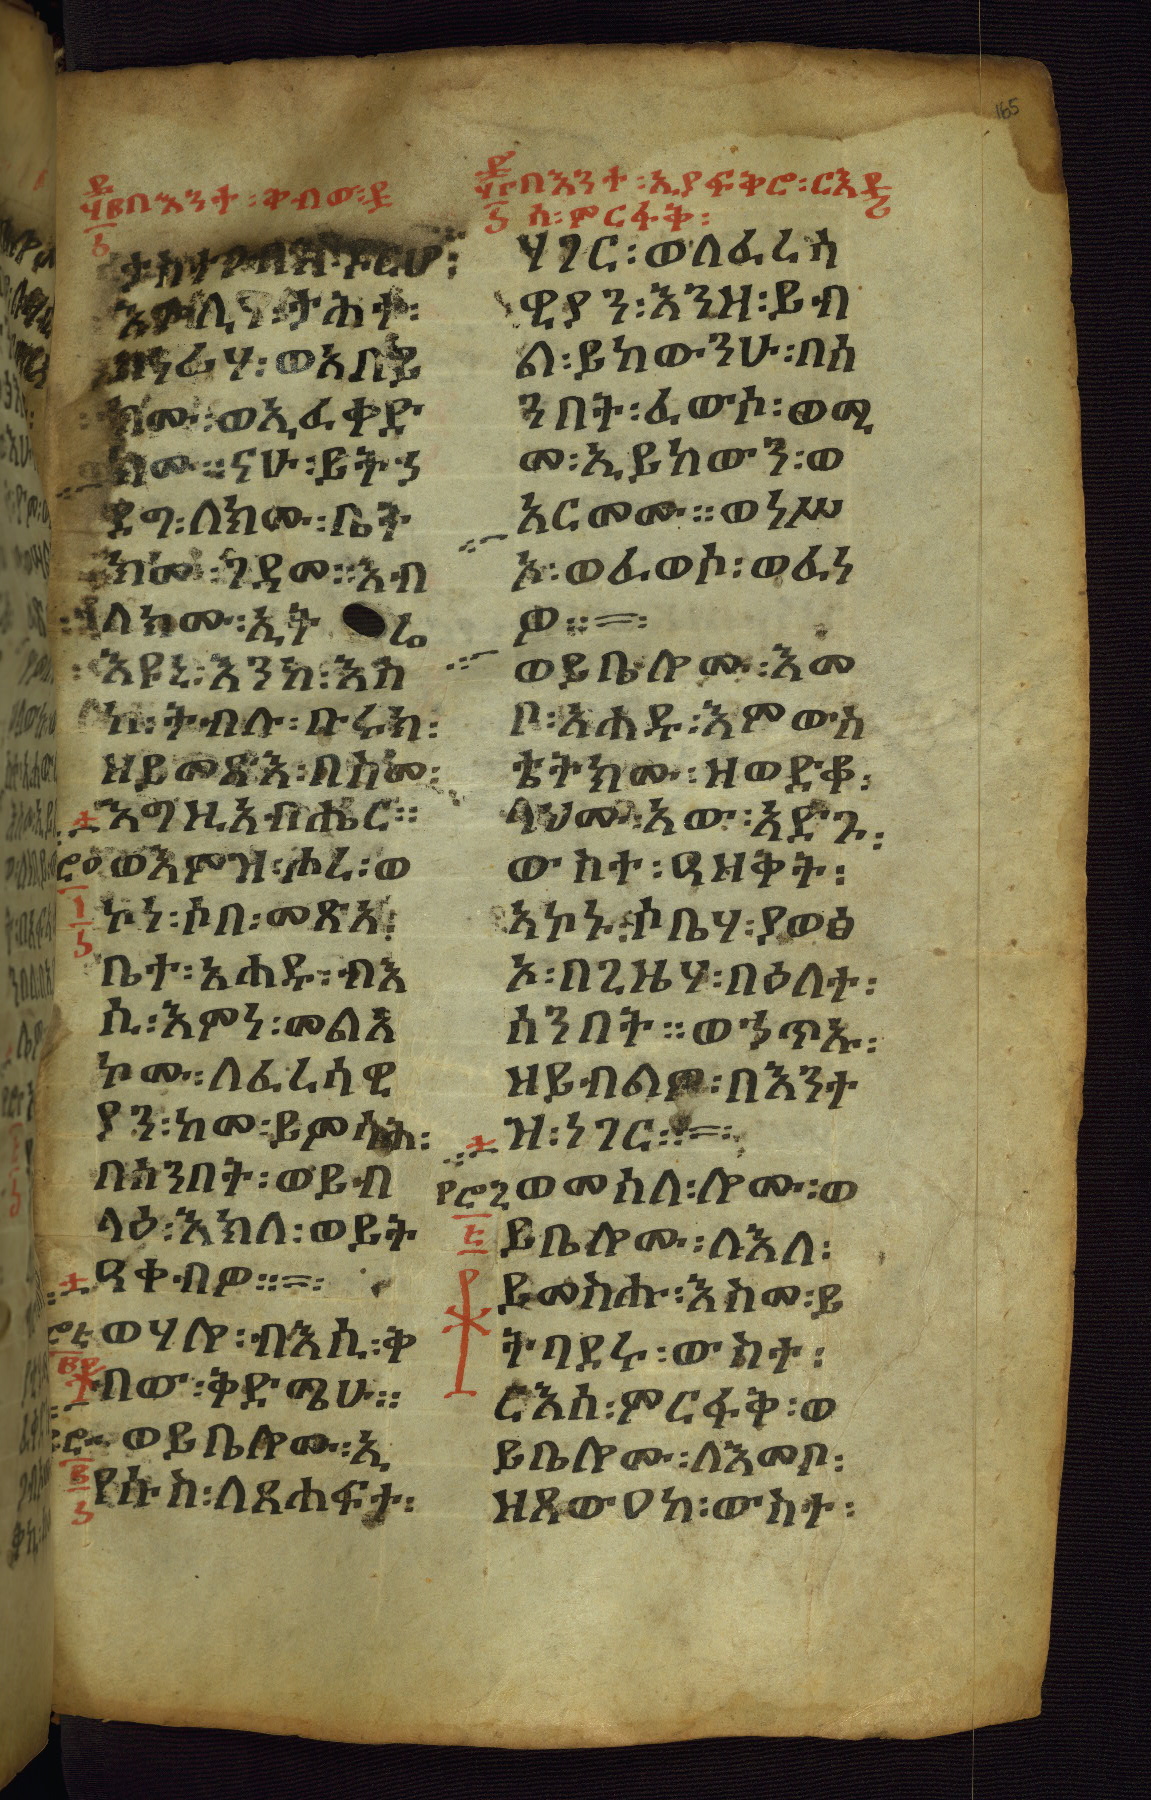 165
በእንተ፡ቅብው፡
ታስተጋብእ፡
እምሊተ፡ታሕተ፡
ክነፊሃ፡ወአበይ
ክሙ፡ወኢፈቀድ
ክሙ።ናሁ፡ይትኃ
ደግ፡ለክሙ፡ቤት
ክሙ፡ገዳመ።እብ
ለክሙ፡ኢት ሬ
እዩኒ፡እንከ፡እስ
ከ፡ትብሉ፡ቡሩክ፡
ዘይመጽእ፡በስመ፡
እግዚአብሔር።
ወእምዝ፡ሖረ፡ወ
ኮነ፡ሶበ፡መጽአ፡
ቤተ፡አሐዱ፡ብእ
ሲ፡እምነ፡መልእ
ኮሙ፡ለፈሪሳዊ
ያን፡ከመ፡ይምሳሕ፡
በሰንበት፡ወይብ
ላዕ፡እክለ፡ወይት
ዓቀብዎ።
ወሃሎ፡ብእሲ፡ቅ
ብው፡ቅድሜሁ።
ወይቤሎሙ፡ኢ
የሱስ፡ለጸሐፍተ፡
በእንተ፡ኢያፍቅሮ፡ርእ
ሰ፡ምርፋቅ፡
ሃገር፡ወለፈሪሳ
ዊያን፡እንዘ፡ይብ
ል፡ይከውንሁ፡በሰ
ንበት፡ፈውሶ፡ወሚ
መ፡ኢይከውን፡ወ
አርመሙ።ወነሥ
ኦ፡ወፈወሶ፡ወፈነ
ዎ።
ወይቤሎሙ፡እመ
ቦ፡አሐዱ፡እምውስ
ቴትክሙ፡ዘወድቆ፡
ላህሙ፡አው፡አድጉ፡
ውስተ፡ዓዘቅት፡
አኮኑ፡ሶቤሃ፡ያወፅ
ኦ፡በጊዜሃ፡በዕለተ፡
ሰንበት።ወኃጥኡ፡
ዘይብልዎ፡በእንተ
ዝ፡ነገር።
ወመሰለ፡ሎሙ፡ወ
ይቤሎሙ፡ለእለ፡
ይመስሑ፡እስመ፡ይ
ትባደሩ፡ውስተ፡
ርእሰ፡ምርፋቅ፡ወ
ይቤሎሙ፡ለእመቦ፡
ዘጸውዐከ፡ውስተ፡